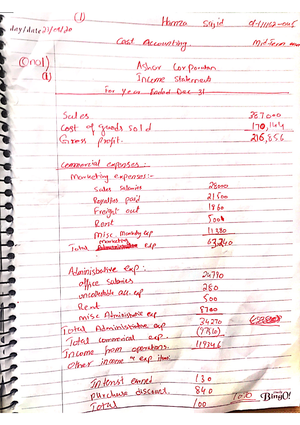 (1)
Hamza Sajid 01-11152-005
day/date 21/04/20
Cost Accounting Mid-Term
Q no1)
a)
Ashar Corporation
Income Statement
For Year Ended Dec 31
Sales 387000
Cost of goods sold 170,144
Gross profit. 216,856
Commercial expenses:-
Marketing expenses:-
Sales Salaries 28000
Royalties paid 21500
Freight out 1860
Rent 500
Misc Marketg exp 11380
Total marketing exp 63240
Administrative exp:
office salaries 24790
uncollectable acc. exp 280
Rent 500
misc Administrative exp 8700
Total Administrative exp 34270
Total commercial exp (97510)
Income from operations. 119346
Other income & exp item
Interest earned 130
Purchase discount 840
Total 100 1070
BingO!